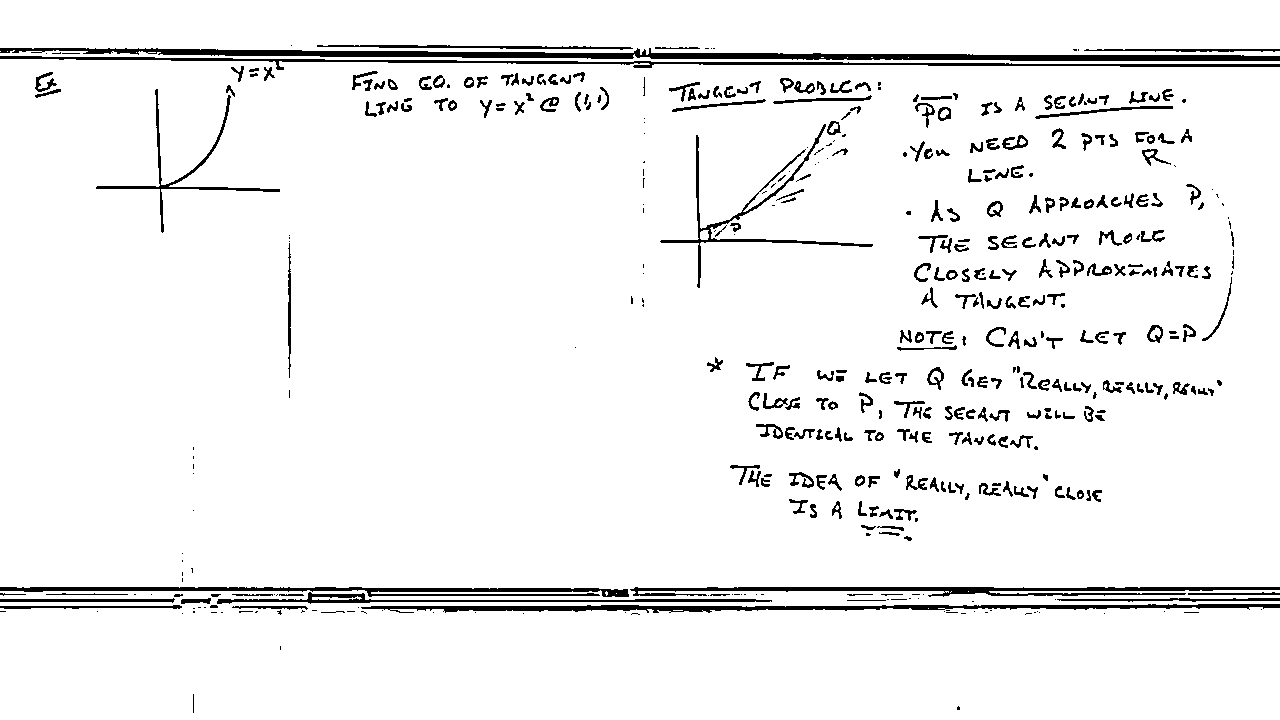 Ex
Y=X²
FIND EQ. OF TANGENT
LINE TO Y=X² @ (1,1)
TANGENT PROBLEM:
Q
P
"PQ" IS A SECANT LINE.
• YOU NEED 2 PTS FOR A
LINE.
• AS Q APPROACHES P,
THE SECANT MORE
CLOSELY APPROXIMATES
A TANGENT.
NOTE: CAN'T LET Q=P
* IF WE LET Q GET "REALLY, REALLY, REALLY"
CLOSE TO P, THE SECANT WILL BE
IDENTICAL TO THE TANGENT.
THE IDEA OF "REALLY, REALLY" CLOSE
IS A LIMIT.